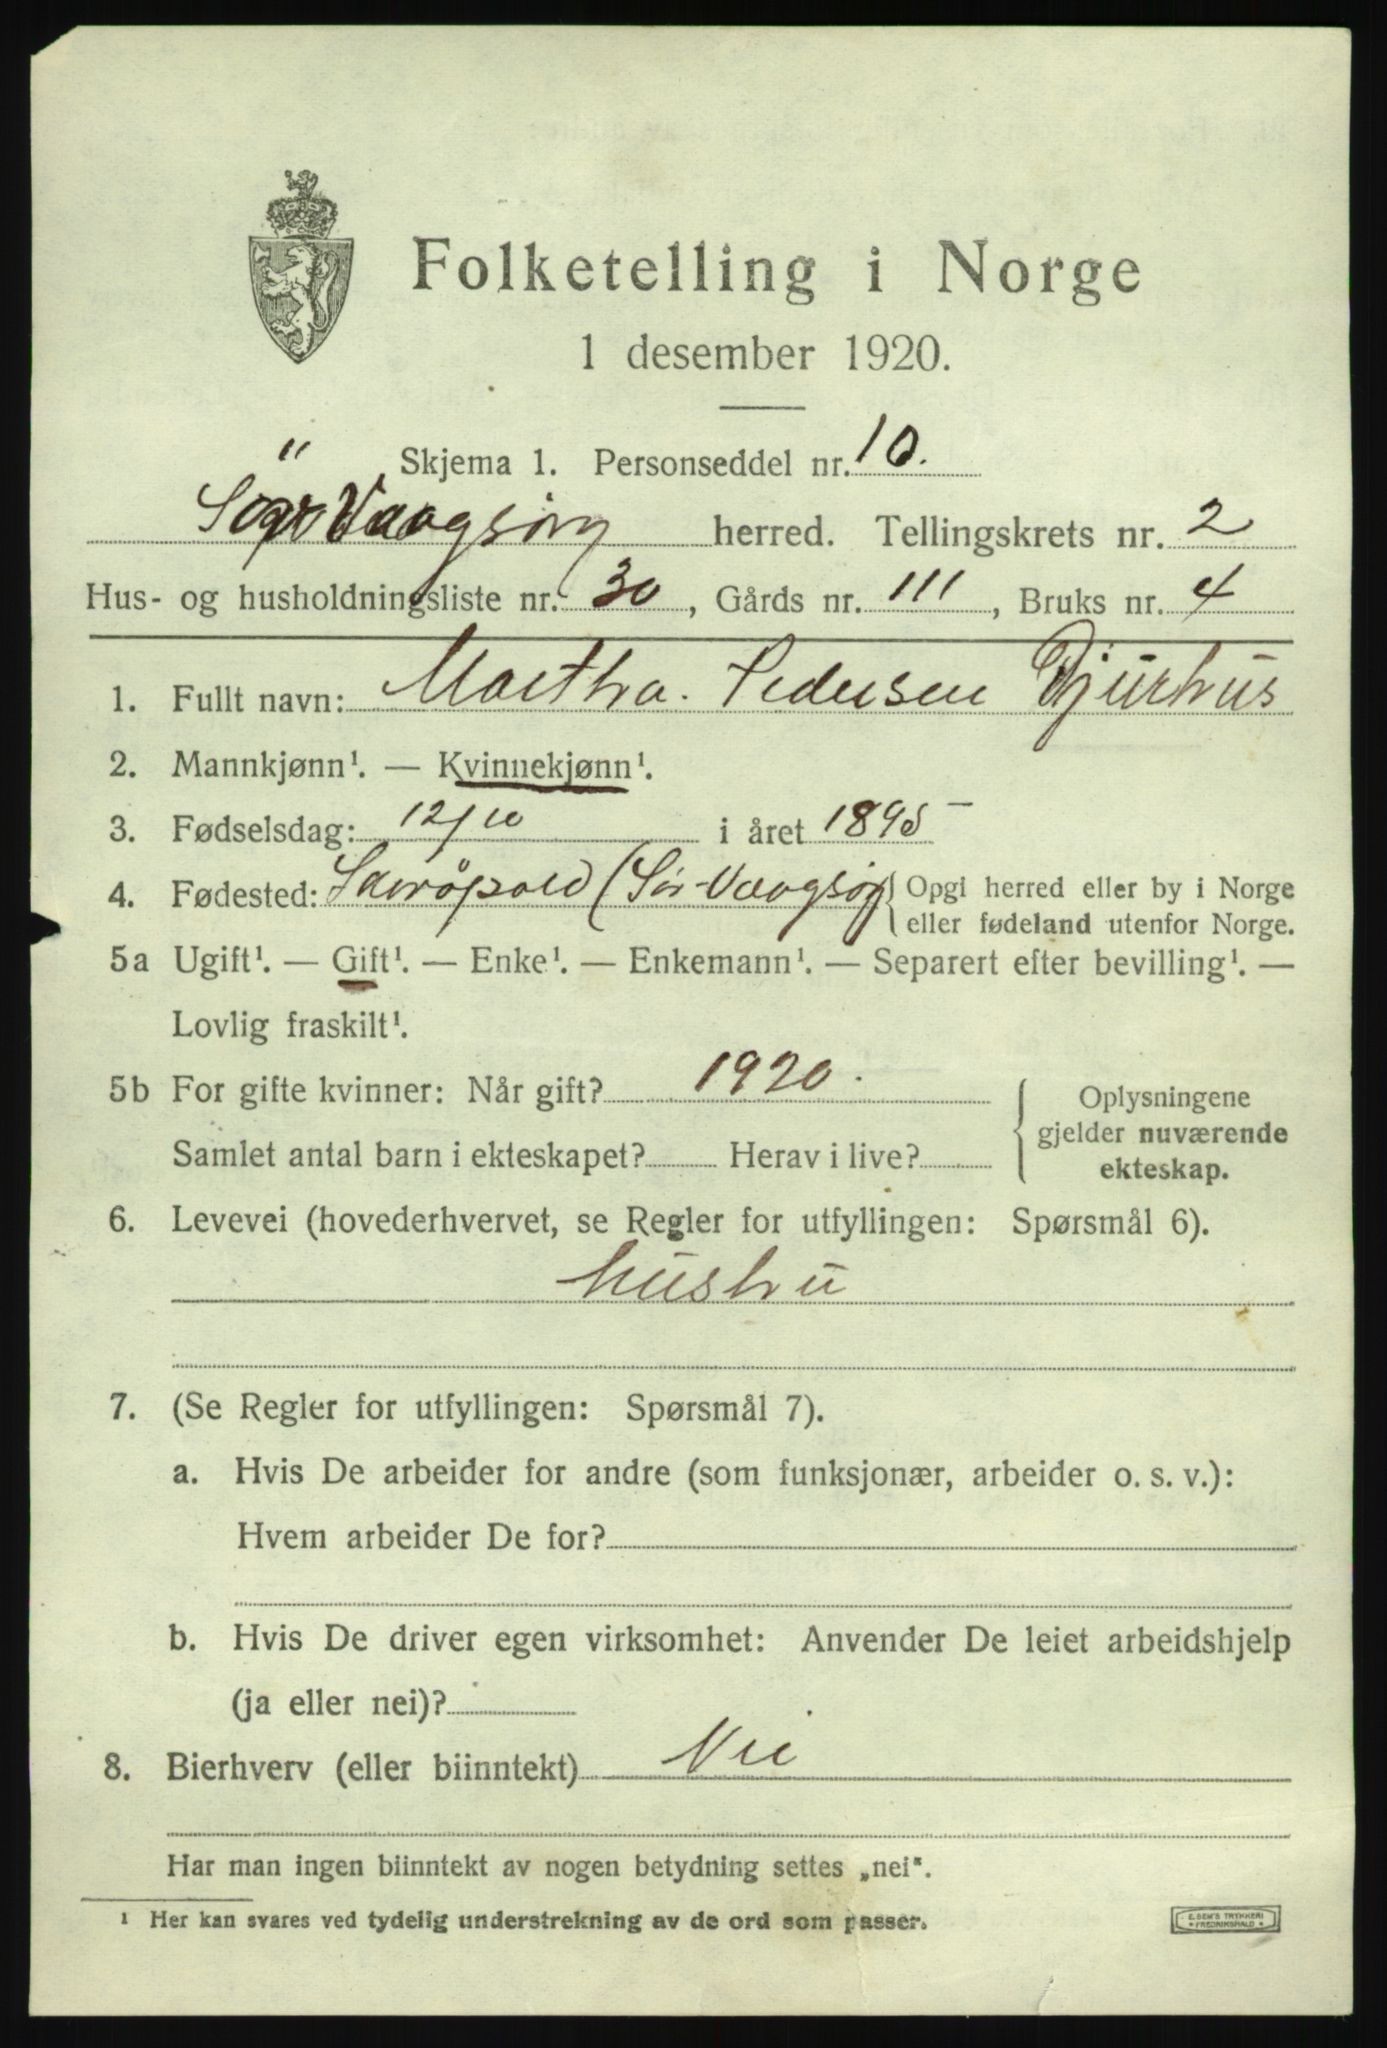 Folketelling i Norge
1 desember 1920.
Skjema 1. Personseddel nr. 10.
Sør Vaagsøy herred. Tellingskrets nr. 2
Hus- og husholdningsliste nr. 30, Gårds nr. 111, Bruks nr. 4
1. Fullt navn: Martha. Pedersen Djurhus
2. Mannkjønn¹. — Kvinnekjønn¹.
3. Fødselsdag: 12/10 i året 1895
4. Fødested: (Sør-Vaagsøy { Opgi herred eller by i Norge
eller fødeland utenfor Norge.
5a Ugift¹. — Gift¹. — Enke¹. — Enkemann¹. — Separert efter bevilling¹. —
Lovlig fraskilt¹.
5b For gifte kvinner: Når gift? 1920.
Samlet antal barn i ekteskapet? Herav i live?
Oplysningene
gjelder nuværende
ekteskap.
6. Levevei (hovederhvervet, se Regler for utfyllingen: Spørsmål 6).
hustru
7. (Se Regler for utfyllingen: Spørsmål 7).
a. Hvis De arbeider for andre (som funksjonær, arbeider o. s. v.):
Hvem arbeider De for?
b. Hvis De driver egen virksomhet: Anvender De leiet arbeidshjelp
(ja eller nei)?
8. Bierhverv (eller biinntekt) Nei
Har man ingen biinntekt av nogen betydning settes „nei".
¹ Her kan svares ved tydelig understrekning av de ord som passer.
E. SEM'S TRYKKERI
* FREDRIKSHALD *